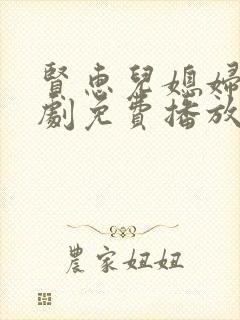 賢惠兒媳婦
劇免費播放
農家妞妞